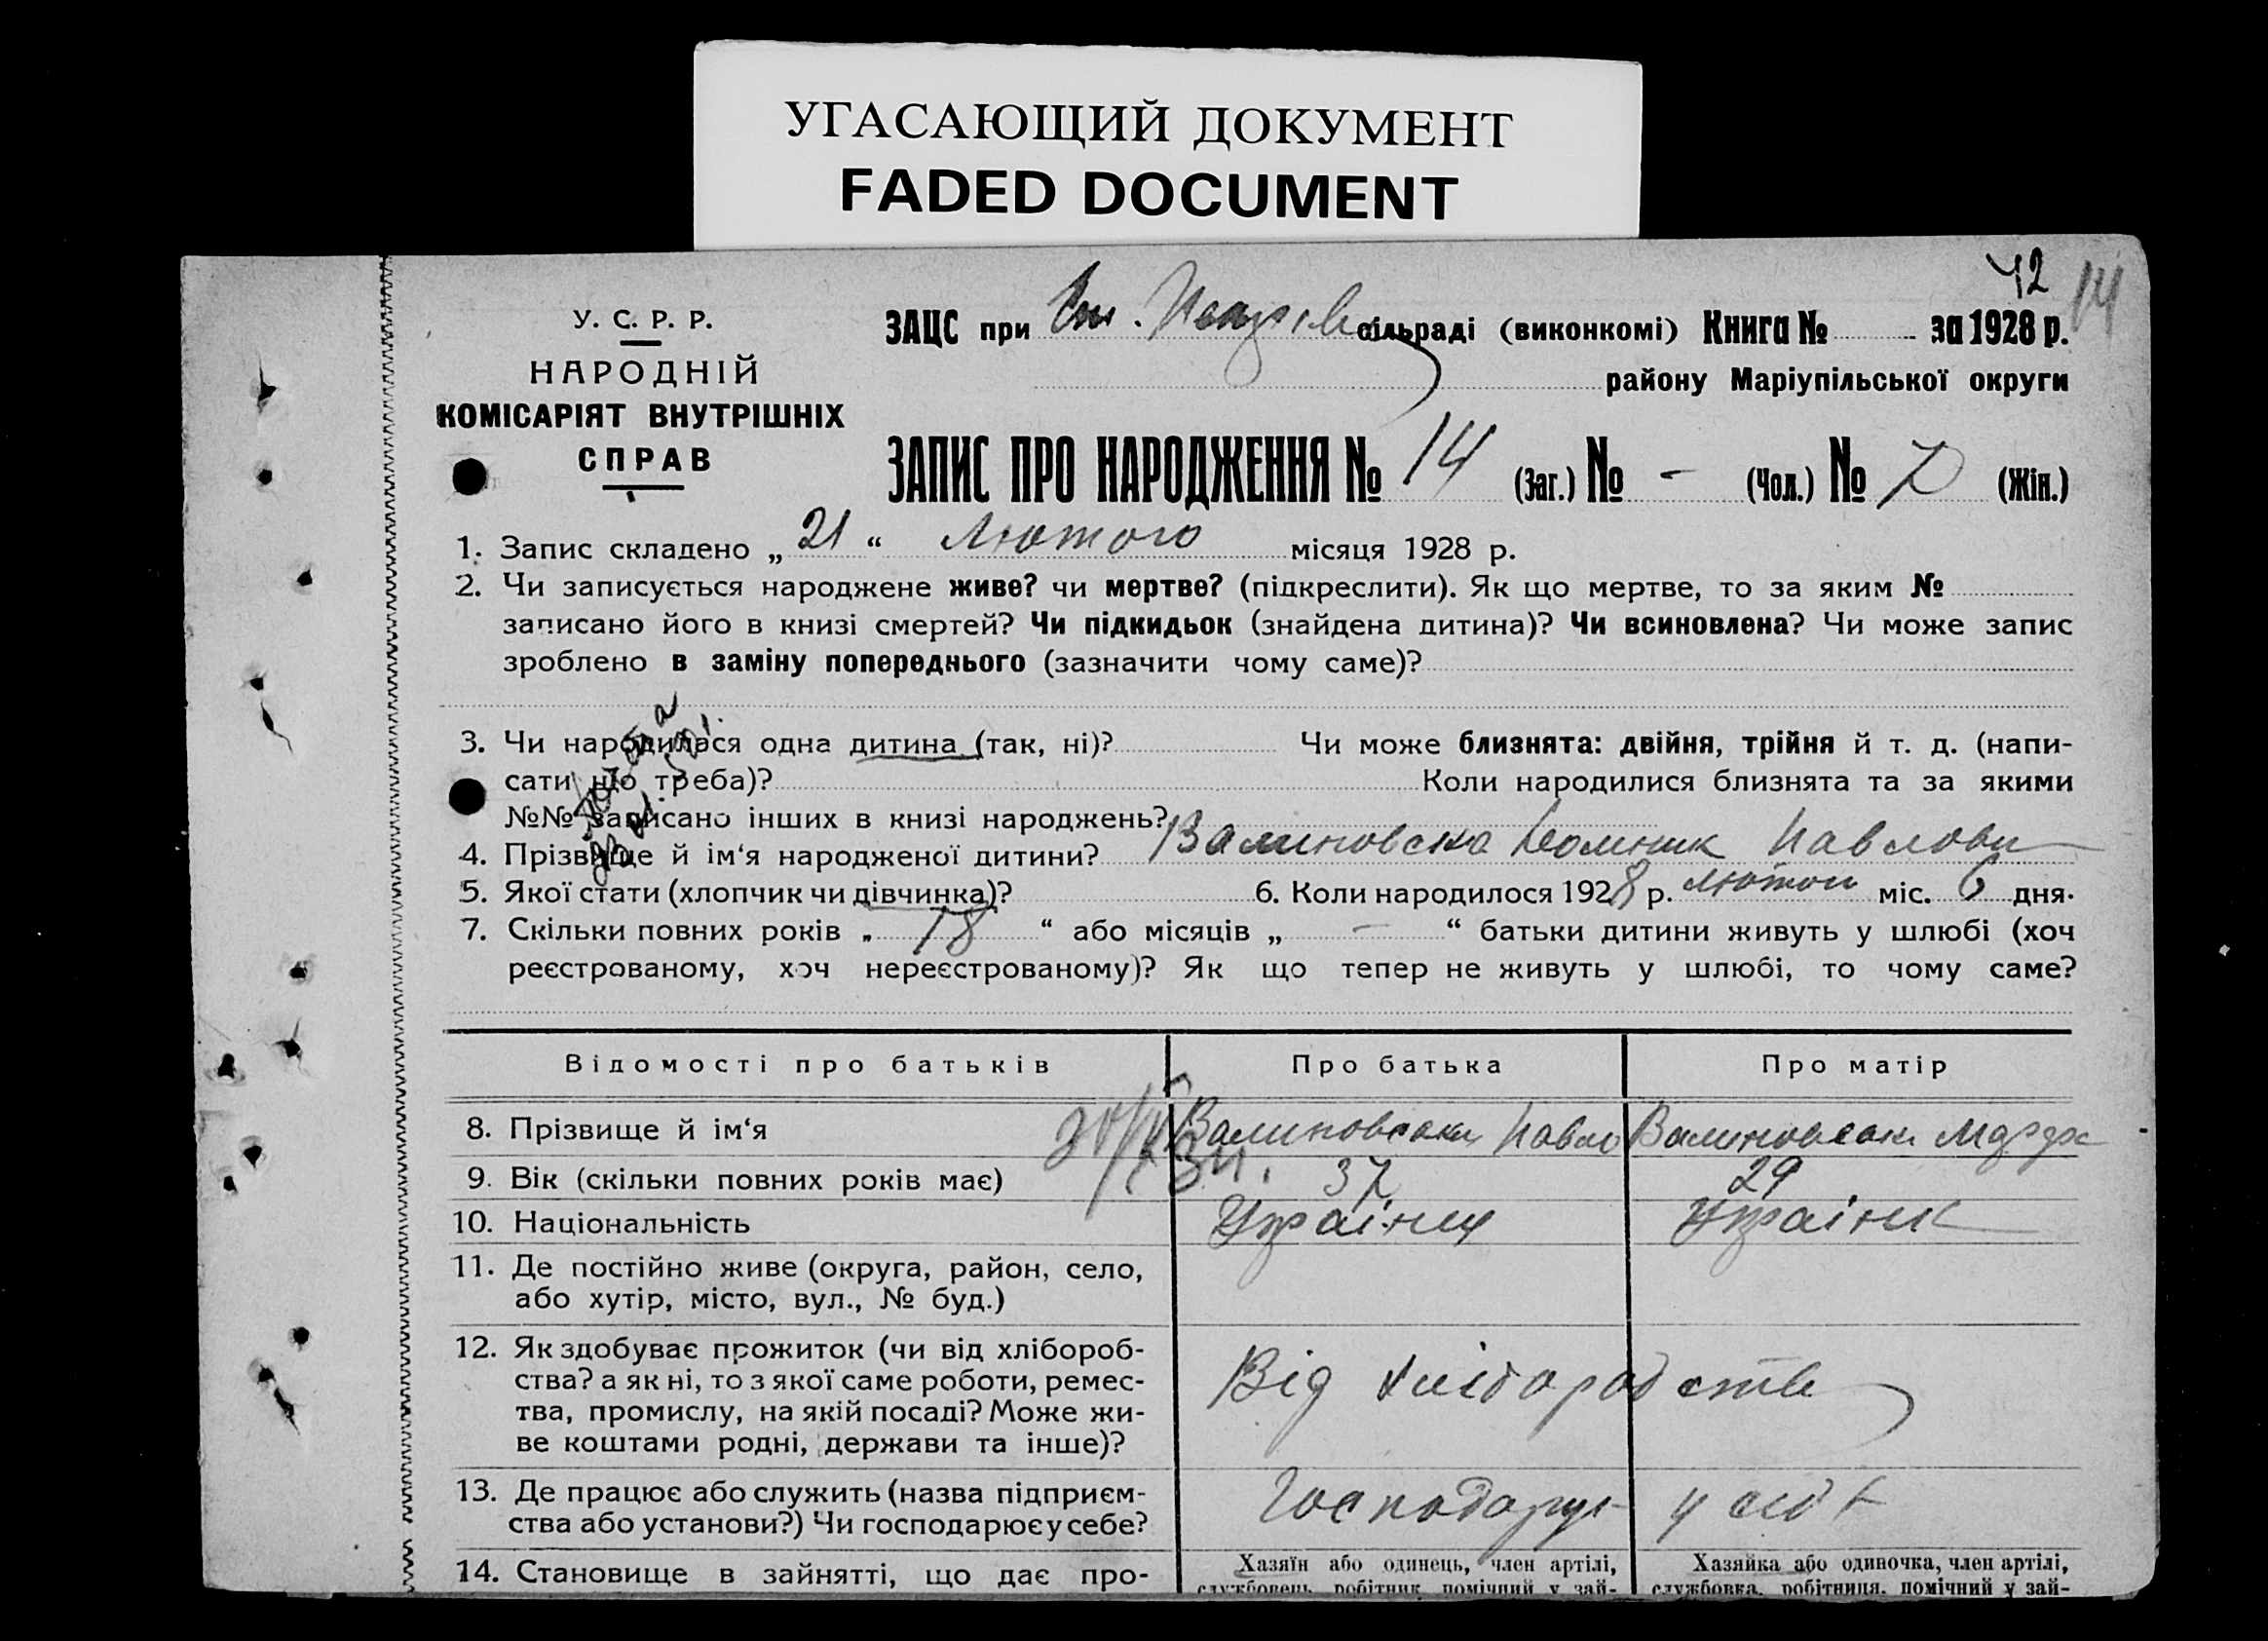 УГАСАЮЩИЙ ДОКУМЕНТ
FADED DOCUMENT
42 14
У. С. Р. Р.
НАРОДНІЙ
КОМІСАРІЯТ ВНУТРІШНІХ
СПРАВ
ЗАЦС при сільраді (виконкомі) Книга № за 1928 р.
району Маріупільської округи
ЗАПИС ПРО НАРОДЖЕННЯ № 14 (Заг.) № - (Чол.) № 7 (Жін.)
1. Запис складено „ 21 “ Лютого місяця 1928 р.
2. Чи записується народжене живе? чи мертве? (підкреслити). Як що мертве, то за яким №
записано його в книзі смертей? Чи підкидьок (знайдена дитина)? Чи всиновлена? Чи може запис
зроблено в заміну попереднього (зазначити чому саме)?
3. Чи народилася одна дитина (так, ні)? Чи може близнята: двійня, трійня й т. д. (напи-
сати що треба)? Коли народилися близнята та за якими
№№ записано інших в книзі народжень?
4. Прізвище й ім‘я народженої дитини? Валиновська Павлови
5. Якої стати (хлопчик чи дівчинка)? 6. Коли народилося 1928 р. лютого міс. 6 дня.
7. Скільки повних років „ 18 “ або місяців „ — “ батьки дитини живуть у шлюбі (хоч
реєстрованому, хоч нереєстрованому)? Як що тепер не живуть у шлюбі, то чому саме?
Відомості про батьків Про батька Про матір
8. Прізвище й ім‘я Валиновськи Павло Валиновськи
9. Вік (скільки повних років має) 37 29
10. Національність Українц Українк
11. Де постійно живе (округа, район, село,
або хутір, місто, вул., № буд.)
12. Як здобуває прожиток (чи від хлібороб-
ства? а як ні, то з якої саме роботи, ремес-
тва, промислу, на якій посаді? Може жи-
ве коштами родні, держави та інше)?
Від хліборобств
13. Де працює або служить (назва підприєм-
ства або установи?) Чи господарює у себе?
Господарує у себе
14. Становище в зайнятті, що дає про-
Хазяїн або одинець, член артілі,
службовець, робітник, помічний у зай-
Хазяйка або одиночка, член артілі,
службовка, робітниця, помічний у зай-